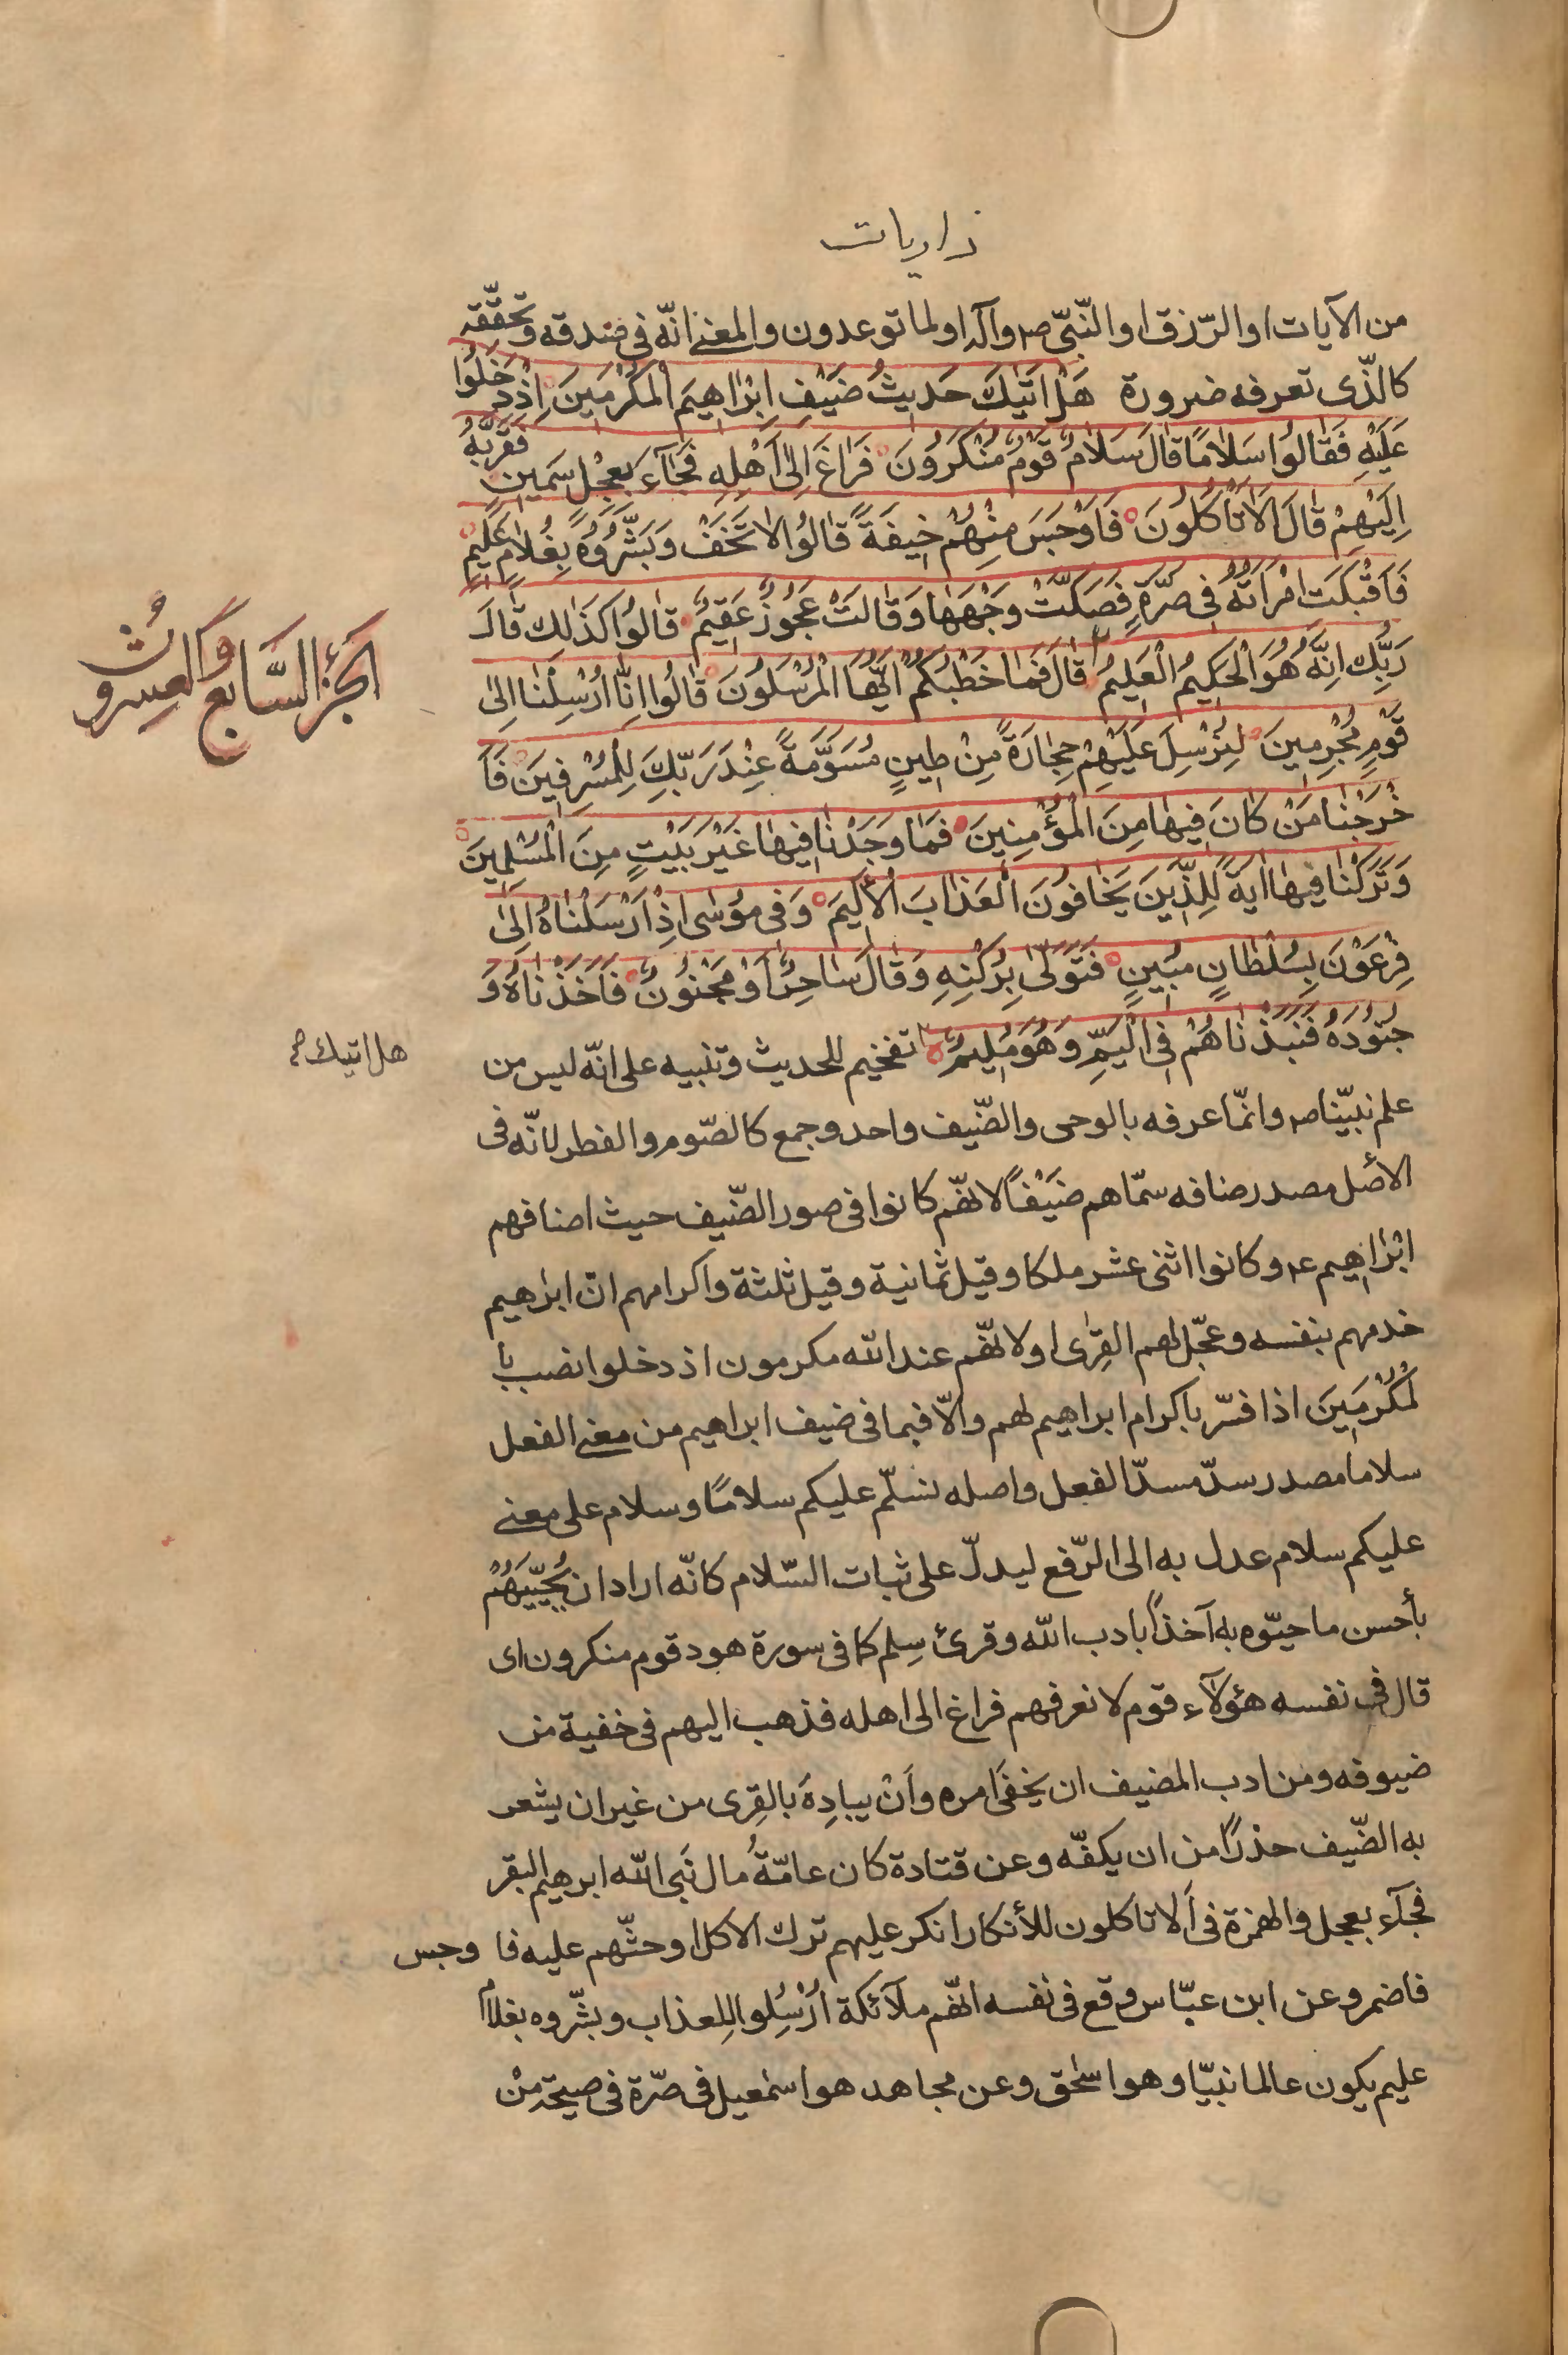 ذاريات
من الآيات او الرّزق او النّبىّ ص وآله او لما توعدون والمعنى انّه فى صدقه وتحقّقه
كالّذى تعرفه ضرورة هَلْ اَتٰيكَ حَديثُ ضَيْفِ اِبْرٰاهِيمَ الْمُكْرَمينَ اِذْ دَخَلُوا
عَلَيْهِ فَقٰالُوا سَلٰامًا قٰالَ سَلٰامٌ قَوْمٌ مُنْكَرُونَ فَرٰاغَ اِلىٰ اَهْلِهِ فَجٰآءَ بِعِجْلٍ سَمينٍ فَقَرَّبَهُ
اِلَيْهِمْ قٰالَ اَلاٰ تَأْكُلُونَ فَاَوْجَسَ مِنْهُمْ خيفَةً قٰالُوا لاٰ تَخَفْ وَبَشَّرُوُهُ بِغُلٰامٍ عَليمٍ
فَاَقْبَلَتِ امْرَاَتُهُ فى صَرَّةٍ فَصَكَّتْ وَجْهَهٰا وَقٰالَتْ عَجُوزٌ عَقيمٌ قٰالُوا كَذٰلِكِ قٰالَ
رَبُّكِ اِنَّهُ هُوَ الْحَكيمُ الْعَليمُ قٰالَ فَمٰا خَطْبُكُمْ اَيُّهَا الْمُرْسَلُونَ قٰالُوا اِنّٰا اُرْسِلْنٰا اِلىٰ
قَوْمٍ مُجْرِمينَ لِنُرْسِلَ عَلَيْهِمْ حِجٰارَةً مِنْ طينٍ مُسَوَّمَةً عِنْدَ رَبِّكَ لِلْمُسْرِفينَ فَاَ
خْرَجْنٰا مَنْ كٰانَ فيهٰا مِنَ الْمُؤْمِنينَ فَمٰا وَجَدْنٰا فيهٰا غَيْرَ بَيْتٍ مِنَ الْمُسْلِمينَ
وَتَرَكْنٰا فيهٰا ايَةً لِلَّذينَ يَخٰافُونَ الْعَذٰابَ الْأَليمَ وَفى مُوسٰى اِذْ اَرْسَلْنٰاهُ اِلىٰ
فِرْعَوْنَ بِسُلْطٰانٍ مُبينٍ فَتَوَلّٰى بِرُكْنِهِ وَقٰالَ سٰاحِرٌ اَوْ مَجْنُونٌ فَاَخَذْنٰاهُ وَ
جُنُودَهُ فَنَبَذْنٰاهُمْ فِى الْيَمِّ وَهُوَ مُليمٌ تفخيم للحديث وتنبيه على انّه ليس من
علم نبيّنا ص وانّما عرفه بالوحى والضّيف واحد وجمع كالصّوم والفطر لانّه فى
الأصل مصدر ضافه سمّاهم ضَيْفًا لانّهم كانوا فى صور الضّيف حيث اضافهم
ابْرٰاهيم ع وكانوا اثنى عشر ملكا وقيل ثمانية وقيل ثلثة واكرامهم انّ ابرٰهيم
خدمهم بنفسه وعجّل لهم القِرٰى او لانّهم عند الله مكرمون اذ دخلوا نصب با
لْمُكْرَمينَ اذا فسّر باكرام ابراهيم لهم والّا فبما فى ضيف ابراهيم من معنى الفعل
سلاما مصدر سدّ مسدّ الفعل واصله نسلّم عليكم سلامًا وسلام على معنى
عليكم سلام عدل به الى الرّفع ليدلّ على ثبات السّلام كانّه اراد ان يُحَيِّيَهُمْ
بأحسن ما حيّوه به آخذًا بادب الله وقرئ سِلم كما فى سورة هود قوم منكرون اى
قال فى نفسه هؤلآء قوم لا نعرفهم فراغ الى اهله فذهب اليهم فى خفية من
ضيوفه ومن ادب المضيف ان يخفى امره وأن يبادِهَ بالقِرى من غير ان يشعر
به الضّيف حذرًا من ان يكفّه وعن قتادة كان عامّةُ مال نَبى الله ابرهيم البقر
فجآء بعجل والهمزة فى اَلا تاكلون للأنكار انكر عليهم ترك الاكل او حثّهم عليه فا وجس
فاضمر وعن ابن عبّاس وقع فى نفسه انّهم ملآئكة اُرْسِلُوا لِلعذاب وبشّروه بغلام
عليم يكون عالما نبيّا وهو اسحٰق وعن مجاهد هو اسمٰعيل فى صّرة فى صيحة مِنْ
الجُزْءُ السَّابع وَالعِشرونُ
هل اتيك م